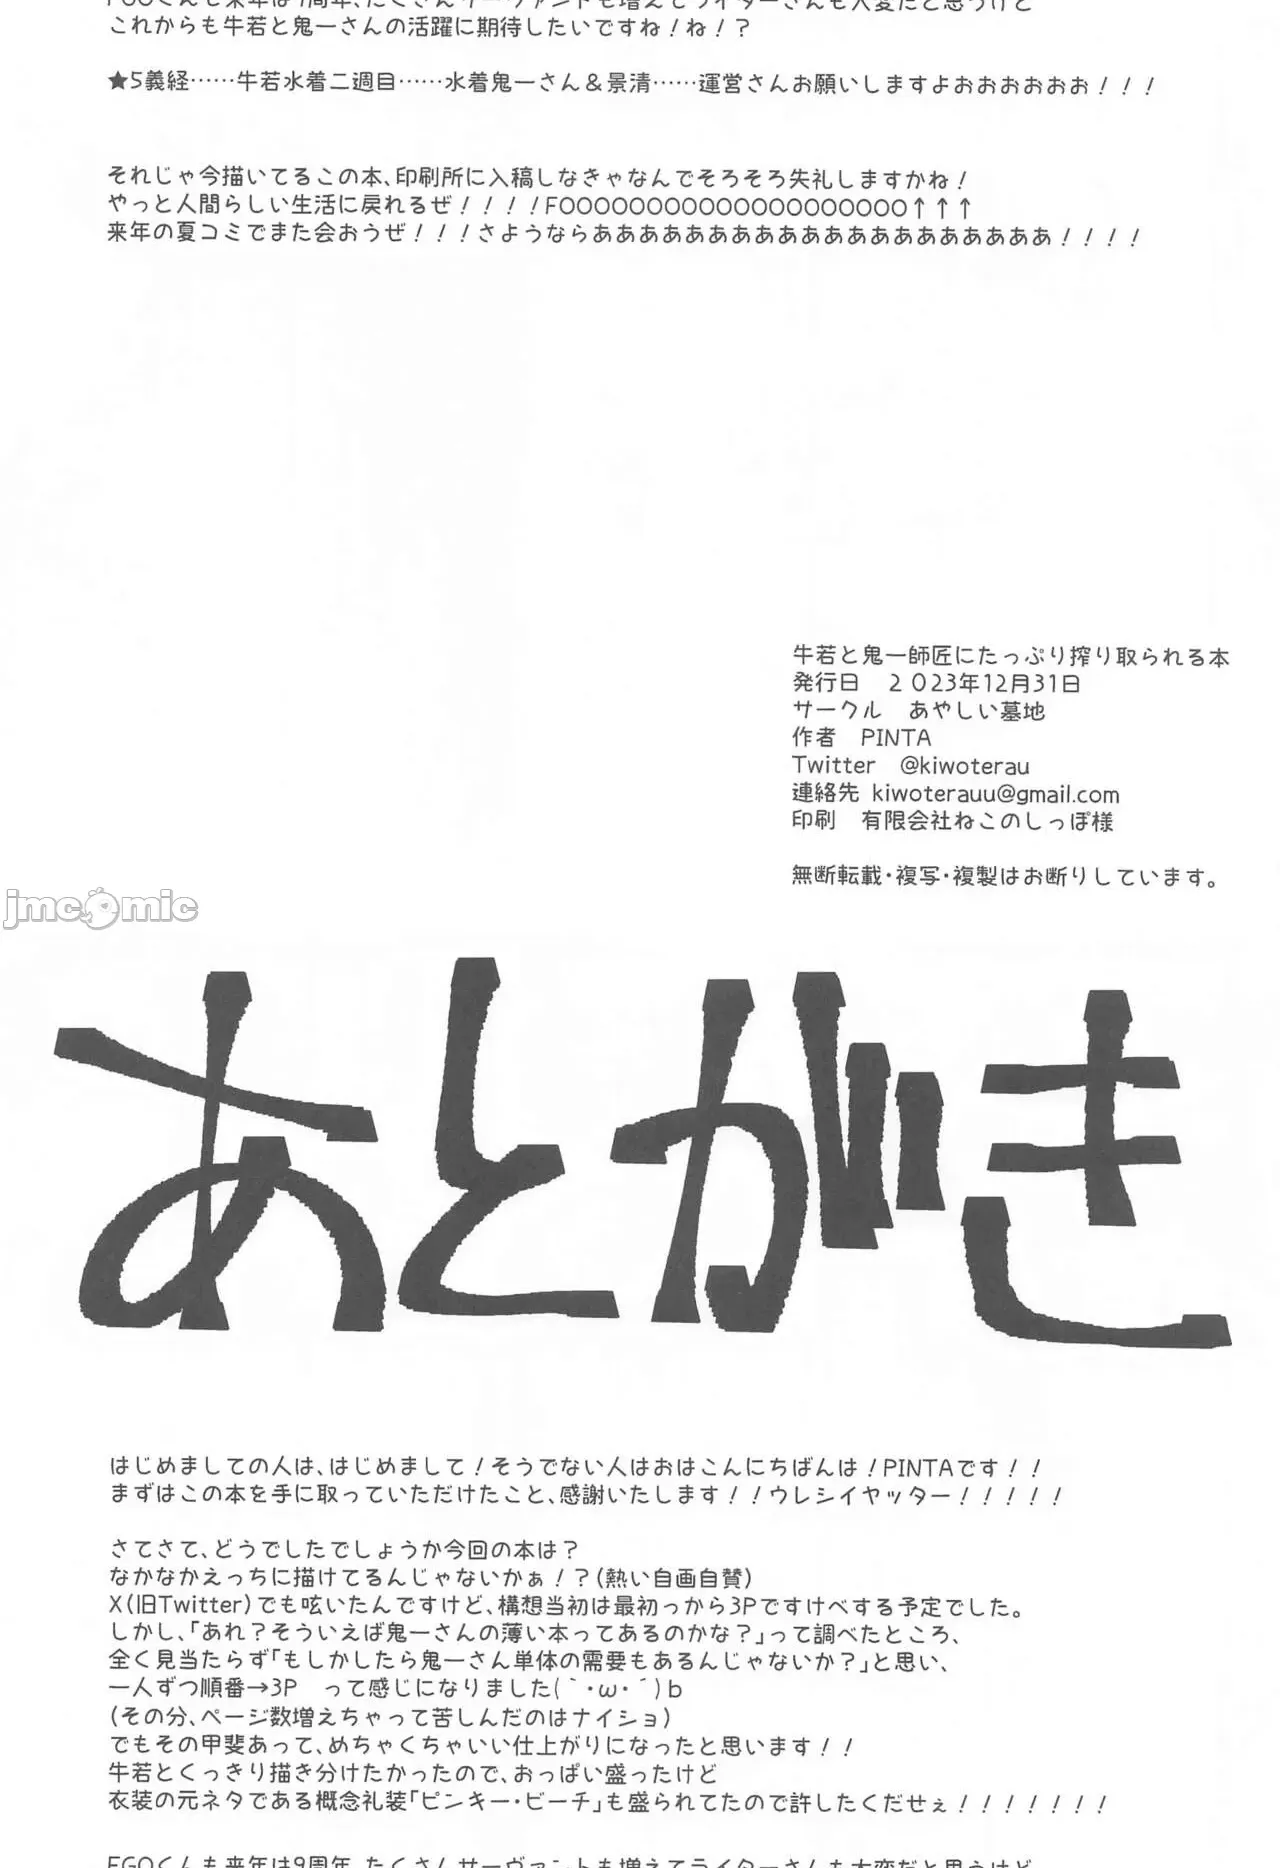 FGOくんも来年は9周年、たくさんサーヴァントも増えてライターさんも大変だと思うけど
これからも牛若と鬼一さんの活躍に期待したいですね！ね！？
★5義経……牛若水着二週目……水着鬼一さん＆景清……運営さんお願いしますよおおおおおお！！！
それじゃ今描いてるこの本、印刷所に入稿しなきゃなんでそろそろ失礼しますかね！
やっと人間らしい生活に戻れるぜ！！！！FOOOOOOOOOOOOOOOOOOOO↑↑↑
来年の夏コミでまた会おうぜ！！！さようならあああああああああああああああああああ！！！！
牛若と鬼一師匠にたっぷり搾り取られる本
発行日　２０23年12月31日
サークル　あやしい墓地
作者　PINTA
Twitter　@kiwoterau
連絡先 kiwoterauu@gmail.com
印刷　有限会社ねこのしっぽ様
無断転載・複写・複製はお断りしています。
jmcomic
あとがき
はじめましての人は、はじめまして！そうでない人はおはこんにちばんは！PINTAです！！
まずはこの本を手に取っていただけたこと、感謝いたします！！ウレシイヤッター！！！！！
さてさて、どうでしたでしょうか今回の本は？
なかなかえっちに描けてるんじゃないかぁ！？(熱い自画自賛)
X(旧Twitter)でも呟いたんですけど、構想当初は最初っから3Pですけべする予定でした。
しかし、「あれ？そういえば鬼一さんの薄い本ってあるのかな？」って調べたところ、
全く見当たらず「もしかしたら鬼一さん単体の需要もあるんじゃないか？」と思い、
一人ずつ順番→3P　って感じになりました(｀・ω・´)ｂ
(その分、ページ数増えちゃって苦しんだのはナイショ)
でもその甲斐あって、めちゃくちゃいい仕上がりになったと思います！！
牛若とくっきり描き分けたかったので、おっぱい盛ったけど
衣装の元ネタである概念礼装「ピンキー・ビーチ」も盛られてたので許したくだせぇ！！！！！！！
FGOくんも来年は9周年、たくさんサーヴァントも増えてライターさんも大変だと思うけど